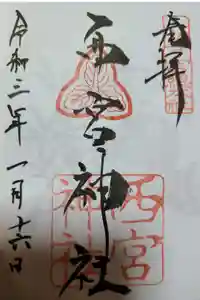 奉拝
西宮神社
令和三年一月十六日
西宮
神社